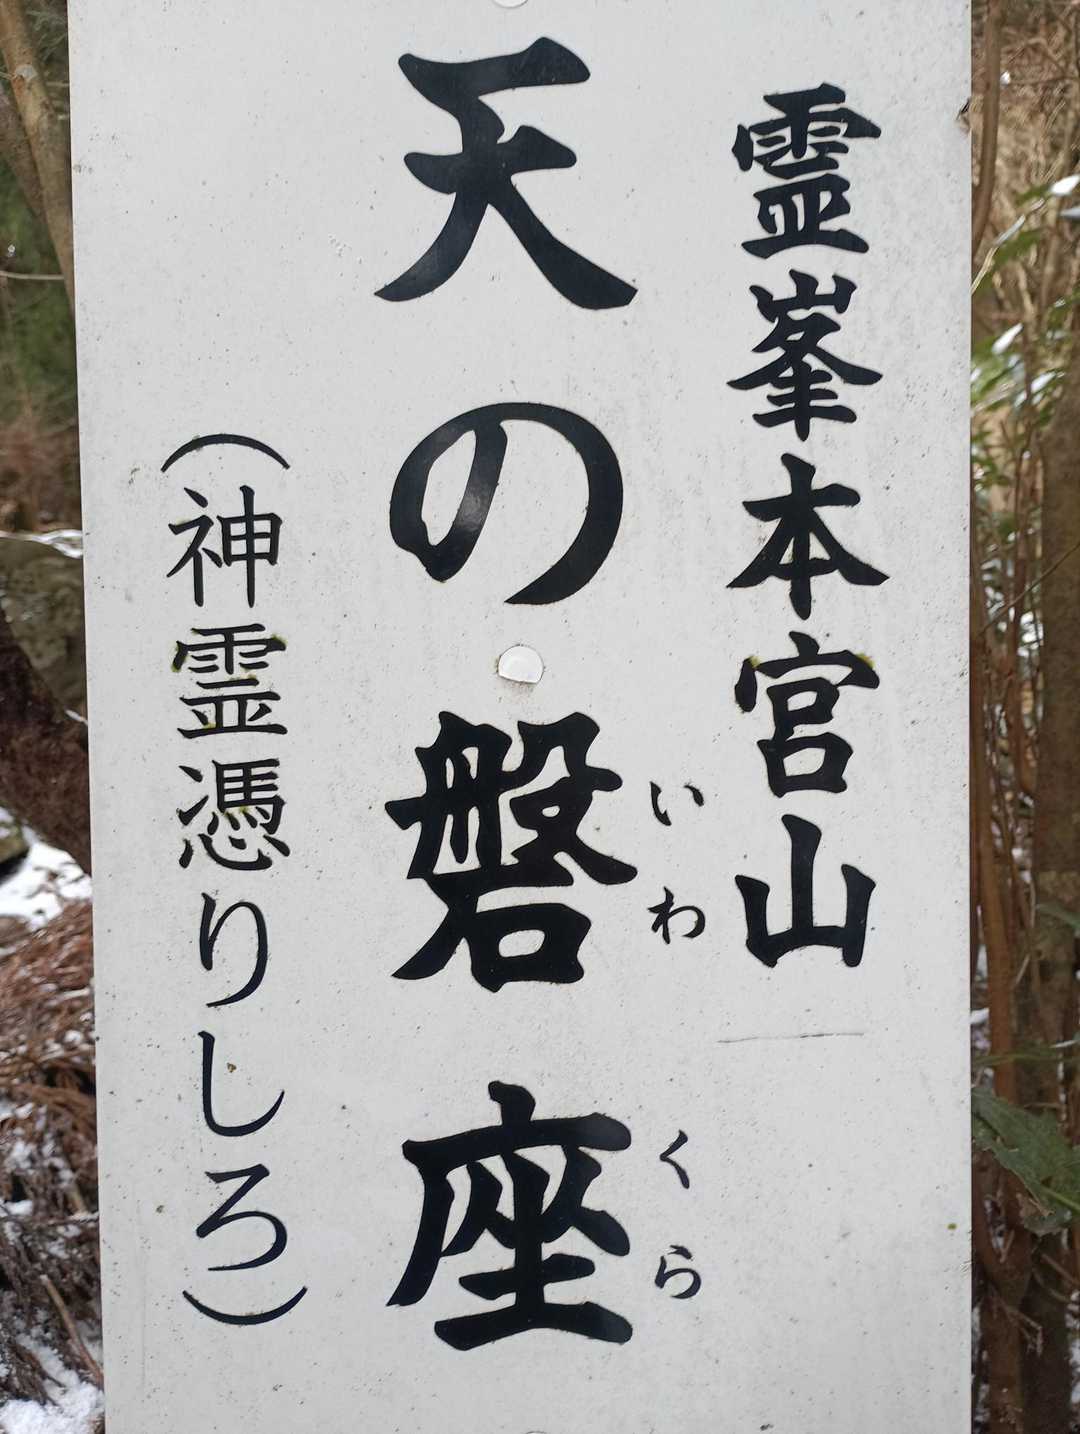 霊峯本宮山
天の磐座
いわくら
（神霊憑りしろ）